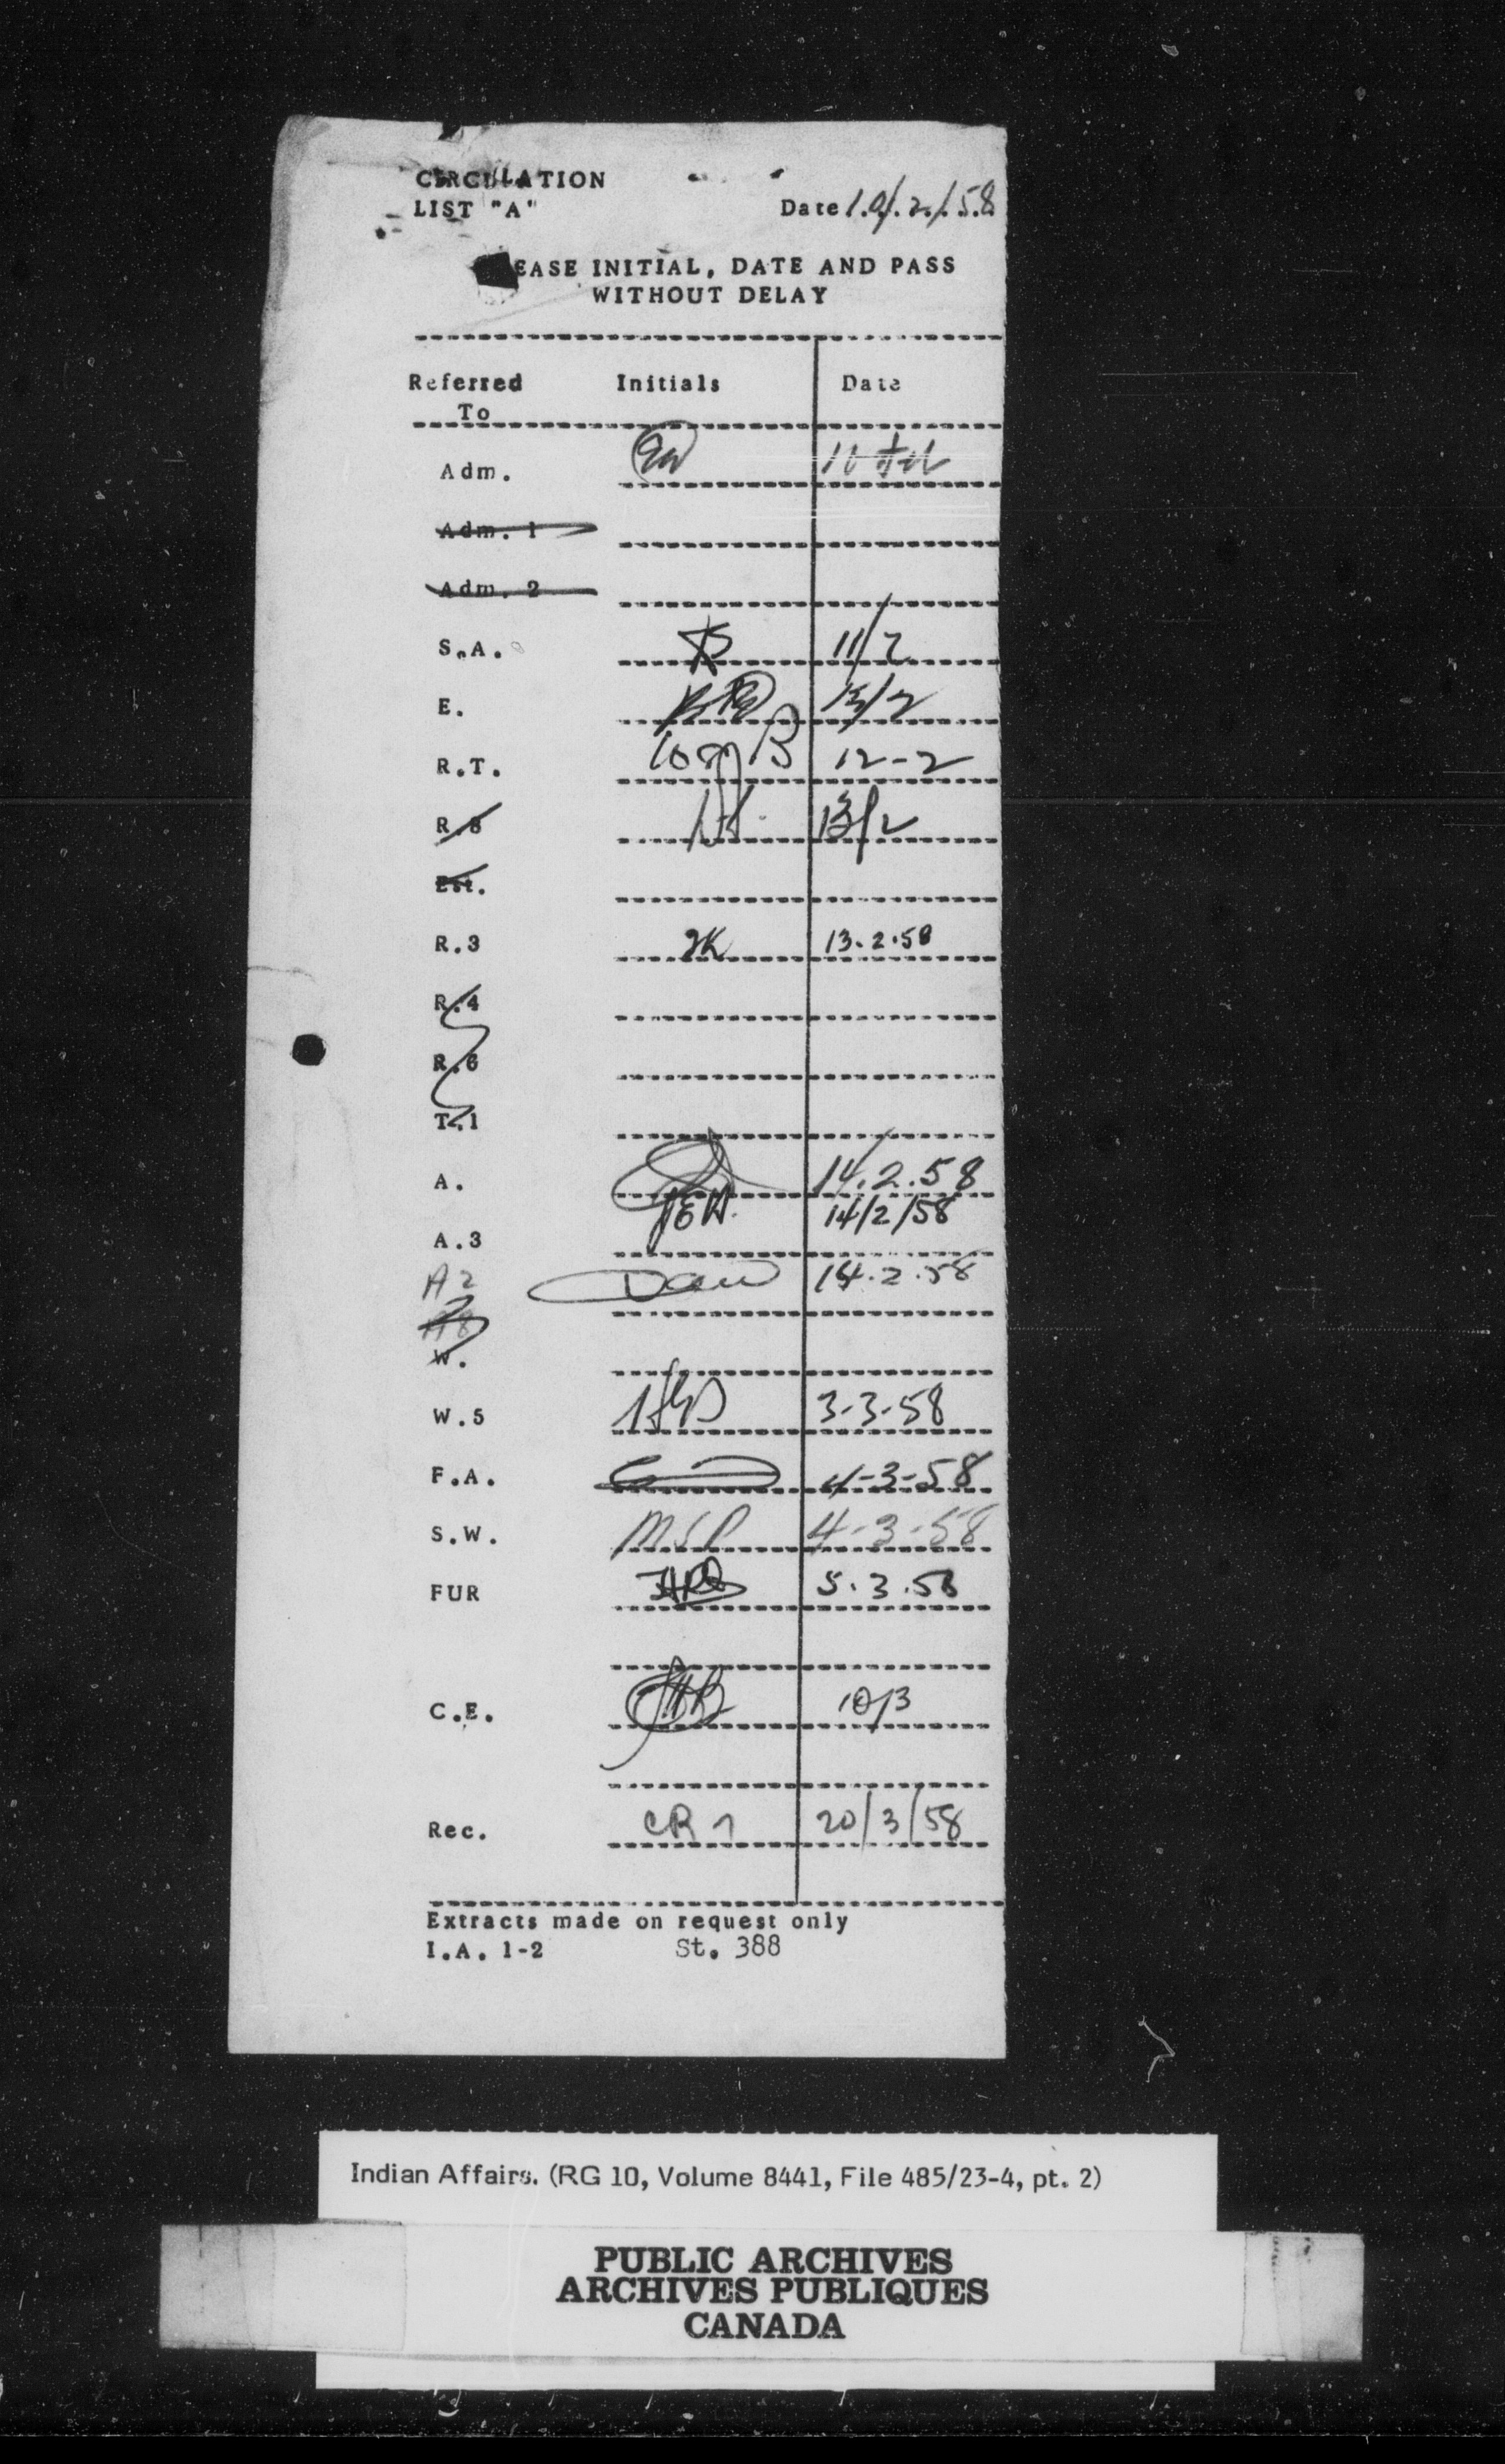 CIRCULATION
LIST "A" Date 10/2/58
EASE INITIAL, DATE AND PASS
WITHOUT DELAY
Referred Initials Date
To
Adm.
Adm. 1
Adm. 2
S.A. 11/2
E. 13/2
R.T. 12-2
R.8 13/2
Est.
R.3 13.2.58
R.4
R.6
T.1
A. 14.2.58
A.3 14/2/58
A2 14.2.58
W.
W.5 3-3-58
F.A. 4-3-58
S.W. 4-3-58
FUR 5.3.58
C.E. 10/3
Rec. CR 20/3/58
Extracts made on request only
I.A. 1-2 St. 388
Indian Affairs. (RG 10, Volume 8441, File 485/23-4, pt. 2)
PUBLIC ARCHIVES
ARCHIVES PUBLIQUES
CANADA